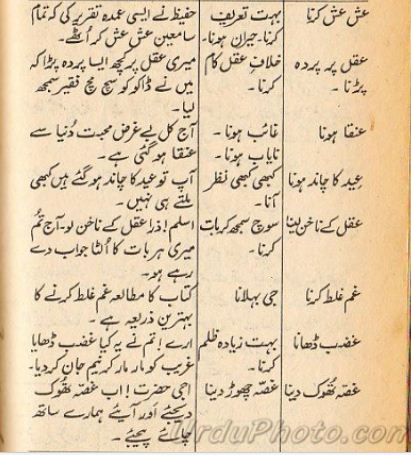 عش عش کرنا	بہت تعریف کرنا۔ حیران ہونا۔	حفیظ نے ایسی عمدہ تقریر کی کہ تمام سامعین عش عش کر اُٹھے۔
عقل پر پردہ پڑنا۔	خلافِ عقل کام کرنا۔	میری عقل پر کچھ ایسا پردہ پڑا کہ میں نے ڈاکو کو سچ مچ فقیر سمجھ لیا۔
عنقا ہونا	غائب ہونا۔ نایاب ہونا۔	آج کل بے غرض محبت دُنیا سے عنقا ہو گئی ہے۔
عید کا چاند ہونا	کبھی کبھی نظر آنا۔	آپ تو عید کا چاند ہو گئے ہیں کبھی ملتے ہی نہیں۔
عقل کے ناخن لینا	سوچ سمجھ کر بات کرنا۔	اسلم! ذرا عقل کے ناخن لو۔ آج تم میری ہر بات کا اُلٹا جواب دے رہے ہو۔
غم غلط کرنا	جی بہلانا	کتاب کا مطالعہ غم غلط کرنے کا بہترین ذریعہ ہے۔
غضب ڈھانا	بہت زیادہ ظلم کرنا۔	ارے! تم نے یہ کیا غضب ڈھایا غریب کو مار مار کر نیم جان کر دیا۔
غصہ تُھوک دینا	غصّہ چھوڑ دینا	اجی حضرت! اب غصّہ تُھوک دیجئے اور آیئے ہمارے ساتھ چائے پیجئے۔
UrduPhoto.com